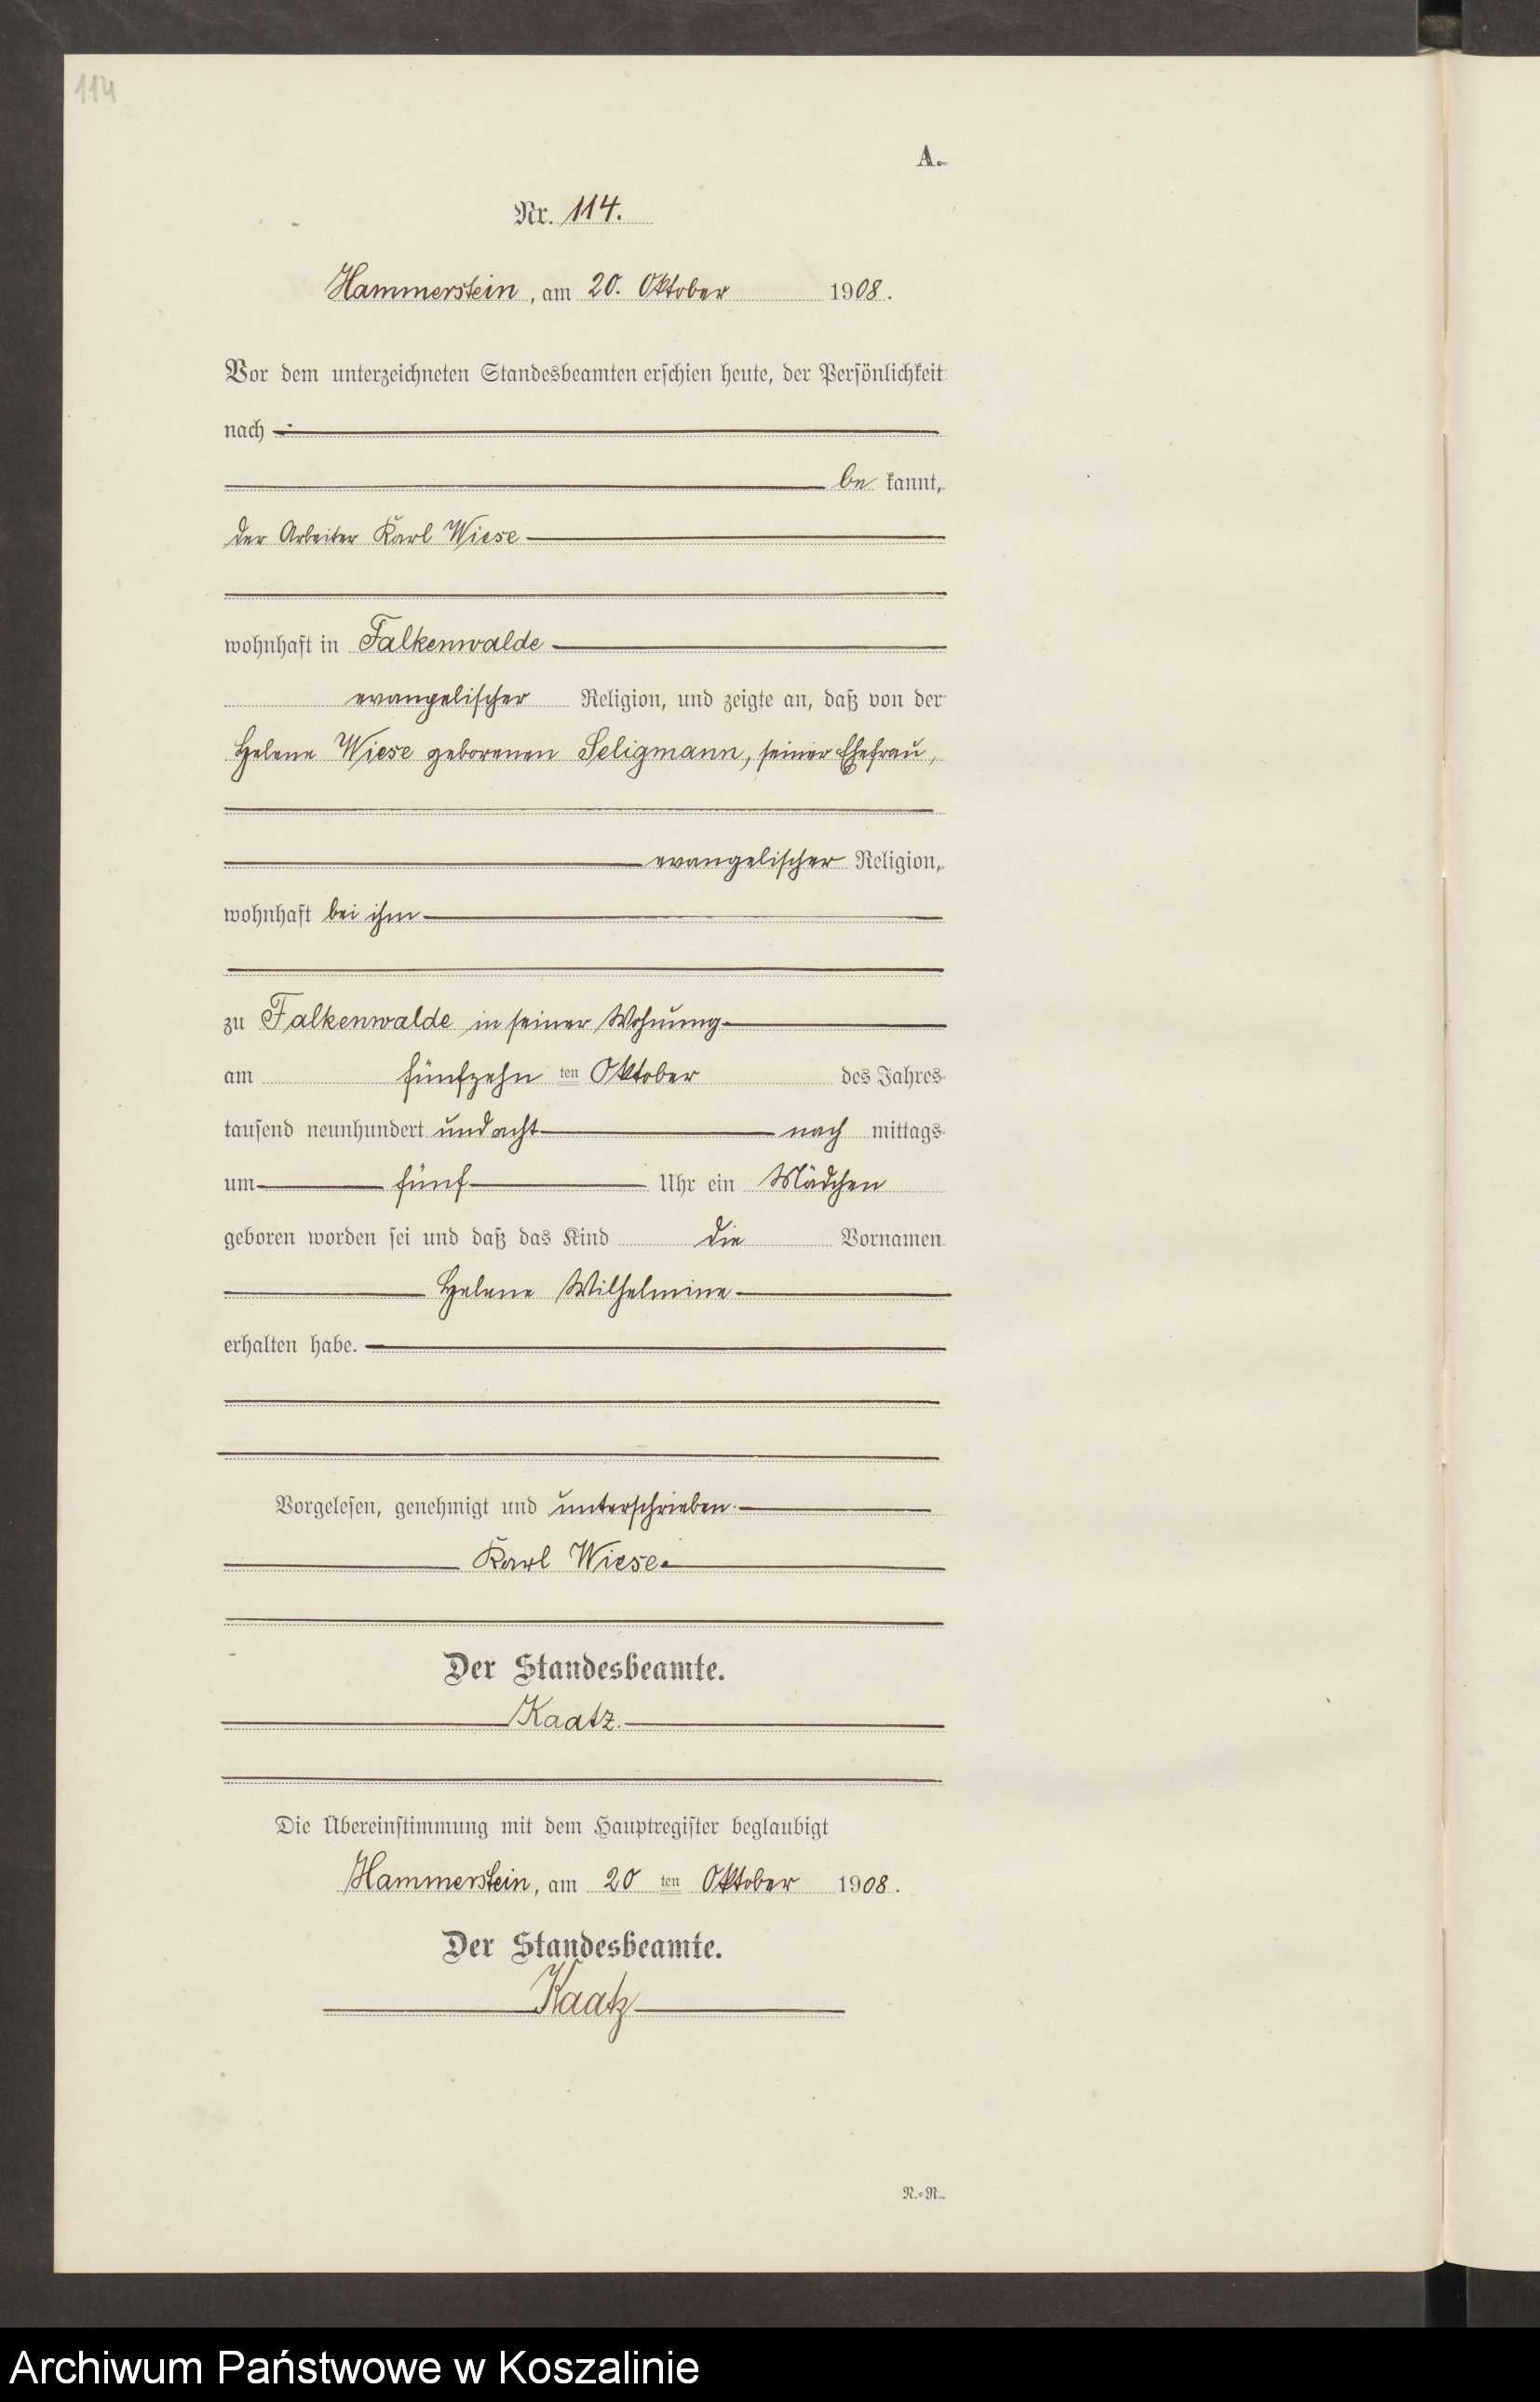 114
A.
Nr. 114.
Hammerstein, am 20. Oktober 1908.
Vor dem unterzeichneten Standesbeamten erschien heute, der Persönlichkeit
nach
be kannt,
der Arbeiter Karl Wiese
wohnhaft in Falkenwalde
evangelischer Religion, und zeigte an, daß von der
Helene Wiese geborenen Seligmann, seiner Ehefrau,
evangelischer Religion,
wohnhaft bei ihm
zu Falkenwalde in seiner Wohnung
am fünfzehn ten Oktober des Jahres
tausend neunhundert und acht nach mittags
um fünf Uhr ein Mädchen
geboren worden sei und daß das Kind die Vornamen
Helene Wilhelmine
erhalten habe.
Vorgelesen, genehmigt und unterschrieben.
Karl Wiese.
Der Standesbeamte.
Kaatz.
Die Übereinstimmung mit dem Hauptregister beglaubigt
Hammerstein, am 20 ten Oktober 1908.
Der Standesbeamte.
Kaatz
N.=R.
Archiwum Państwowe w Koszalinie